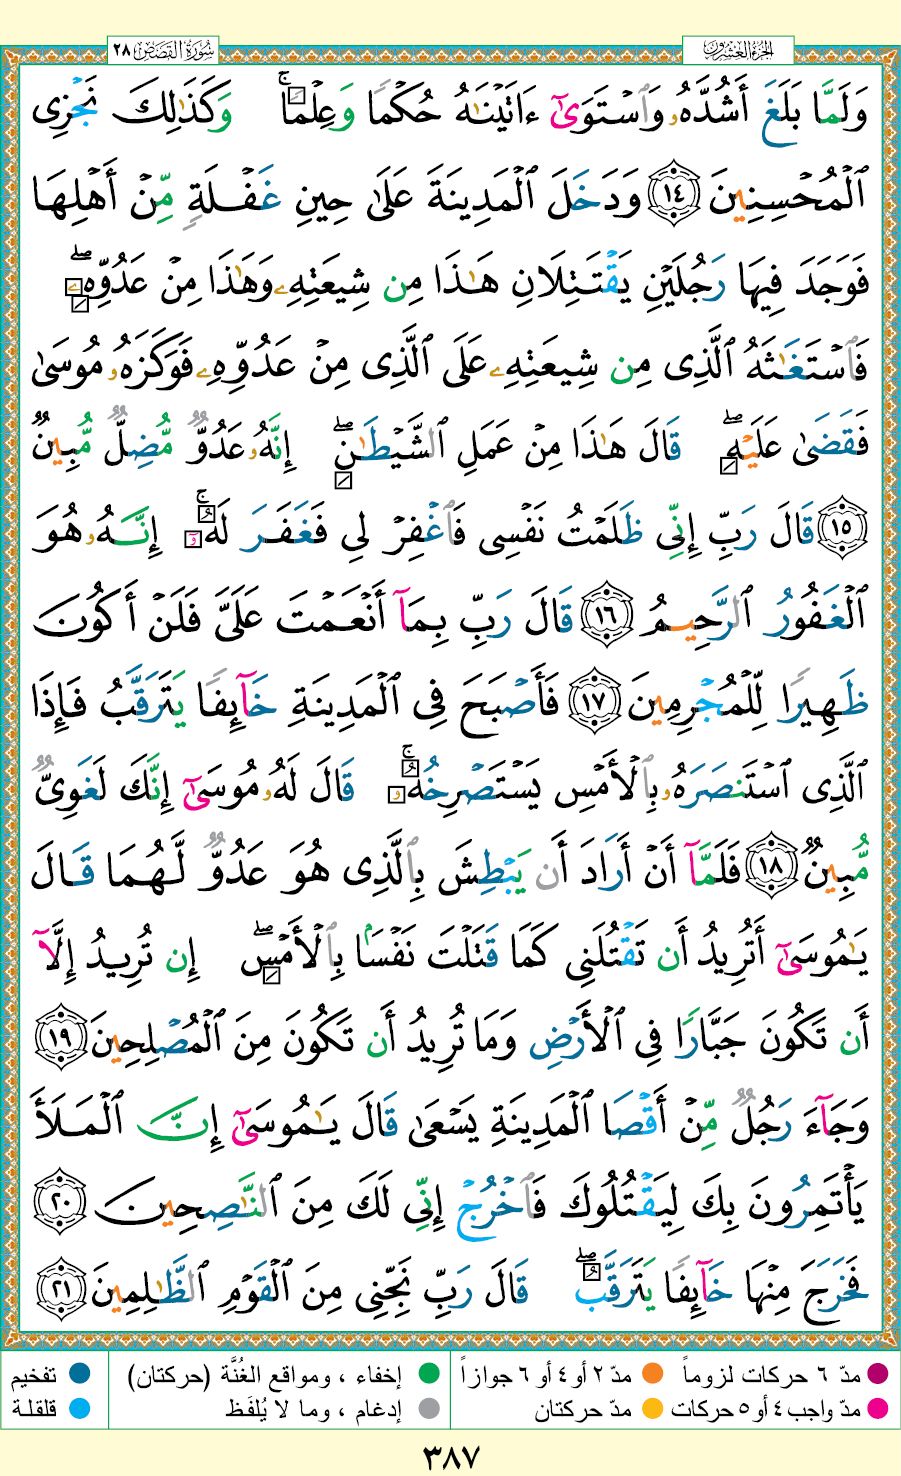 الجزء العشرون
سُورَةُ القَصَصِ ٢٨
وَلَمَّا بَلَغَ أَشُدَّهُۥ وَٱسۡتَوَىٰٓ ءَاتَيۡنَٰهُ حُكۡمٗا وَعِلۡمٗاۚ وَكَذَٰلِكَ نَجۡزِي
ٱلۡمُحۡسِنِينَ ١٤ وَدَخَلَ ٱلۡمَدِينَةَ عَلَىٰ حِينِ غَفۡلَةٖ مِّنۡ أَهۡلِهَا
فَوَجَدَ فِيهَا رَجُلَيۡنِ يَقۡتَتِلَانِ هَٰذَا مِن شِيعَتِهِۦ وَهَٰذَا مِنۡ عَدُوِّهِۦۖ
فَٱسۡتَغَٰثَهُ ٱلَّذِي مِن شِيعَتِهِۦ عَلَى ٱلَّذِي مِنۡ عَدُوِّهِۦ فَوَكَزَهُۥ مُوسَىٰ
فَقَضَىٰ عَلَيۡهِۖ قَالَ هَٰذَا مِنۡ عَمَلِ ٱلشَّيۡطَٰنِۖ إِنَّهُۥ عَدُوّٞ مُّضِلّٞ مُّبِينٞ
١٥ قَالَ رَبِّ إِنِّي ظَلَمۡتُ نَفۡسِي فَٱغۡفِرۡ لِي فَغَفَرَ لَهُۥٓۚ إِنَّهُۥ هُوَ
ٱلۡغَفُورُ ٱلرَّحِيمُ ١٦ قَالَ رَبِّ بِمَآ أَنۡعَمۡتَ عَلَيَّ فَلَنۡ أَكُونَ
ظَهِيرٗا لِّلۡمُجۡرِمِينَ ١٧ فَأَصۡبَحَ فِي ٱلۡمَدِينَةِ خَآئِفٗا يَتَرَقَّبُ فَإِذَا
ٱلَّذِي ٱسۡتَنصَرَهُۥ بِٱلۡأَمۡسِ يَسۡتَصۡرِخُهُۥۚ قَالَ لَهُۥ مُوسَىٰٓ إِنَّكَ لَغَوِيّٞ
مُّبِينٞ ١٨ فَلَمَّآ أَنۡ أَرَادَ أَن يَبۡطِشَ بِٱلَّذِي هُوَ عَدُوّٞ لَّهُمَا قَالَ
يَٰمُوسَىٰٓ أَتُرِيدُ أَن تَقۡتُلَنِي كَمَا قَتَلۡتَ نَفۡسَۢا بِٱلۡأَمۡسِۖ إِن تُرِيدُ إِلَّآ
أَن تَكُونَ جَبَّارٗا فِي ٱلۡأَرۡضِ وَمَا تُرِيدُ أَن تَكُونَ مِنَ ٱلۡمُصۡلِحِينَ ١٩
وَجَآءَ رَجُلٞ مِّنۡ أَقۡصَا ٱلۡمَدِينَةِ يَسۡعَىٰ قَالَ يَٰمُوسَىٰٓ إِنَّ ٱلۡمَلَأَ
يَأۡتَمِرُونَ بِكَ لِيَقۡتُلُوكَ فَٱخۡرُجۡ إِنِّي لَكَ مِنَ ٱلنَّٰصِحِينَ ٢٠
فَخَرَجَ مِنۡهَا خَآئِفٗا يَتَرَقَّبُۖ قَالَ رَبِّ نَجِّنِي مِنَ ٱلۡقَوۡمِ ٱلظَّٰلِمِينَ ٢١
مدّ ٦ حركات لزوماً مدّ ٢ أو ٤ أو ٦ جوازاً إخفاء ، ومواقع الغُنَّة (حركتان) تفخيم
مدّ واجب ٤ أو ٥ حركات مدّ حركتان إدغام ، وما لا يُلفَظ قلقلة
٣٨٧